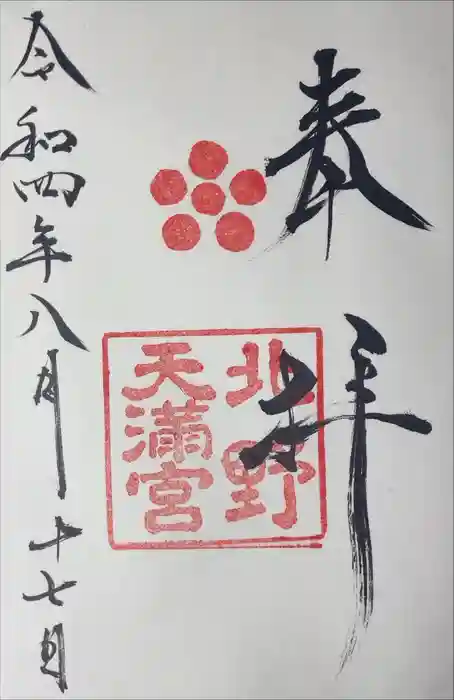 奉拝
北野
天満宮
令和四年八月十七日